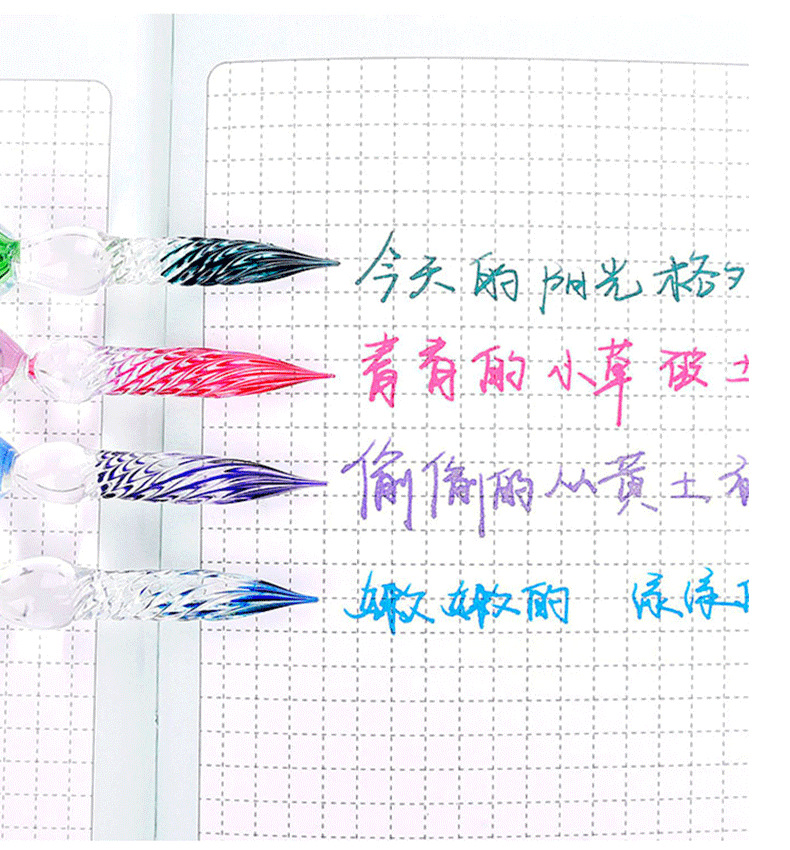 今天的阳光格夕
青青的小草破土
偷偷的从黄土
嫩嫩的 绿绿